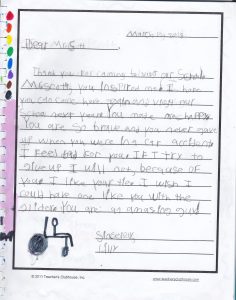 March 15, 2018
Dear Mr.
Thank you for coming to visit our school
you inspired me. I hope
you can come here again and visit our
school next year. You make me happy.
You are so brave and you never gave
up when you were in a car accident.
I feel bad for you. If I try to
give up I will not, because of
you. I like your tier I wish I
could have one like you with the
You are an amazing guy!
Sincerely,
© 2011 Teacher's Clubhouse, Inc.
www.teachersclubhouse.com